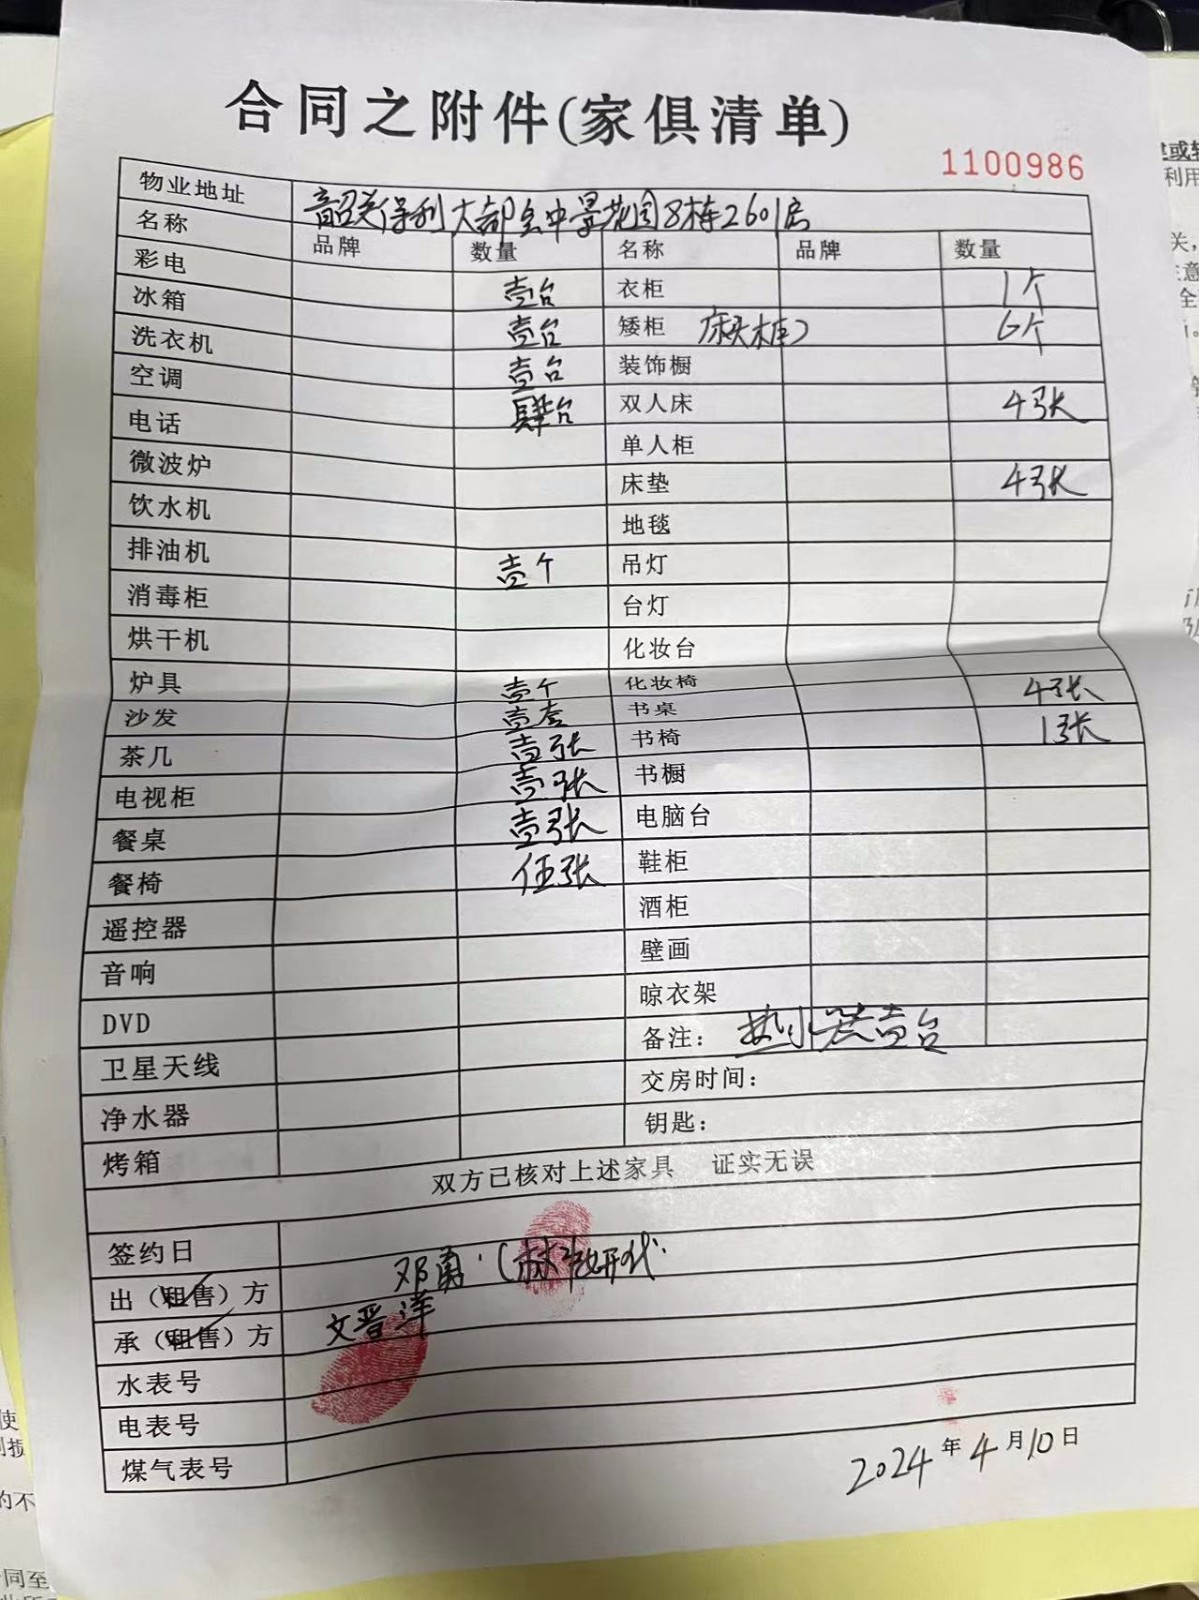 合同之附件(家俱清单)
1100986
物业地址 韶关保利大都会中景花园8栋2601房
名称 品牌 数量 名称 品牌 数量
彩电 壹台 衣柜 1个
冰箱 壹台 矮柜 床头柜 6个
洗衣机 壹台 装饰橱
空调 肆台 双人床 4张
电话 单人柜
微波炉 床垫 4张
饮水机 地毯
排油机 壹个 吊灯
消毒柜 台灯
烘干机 化妆台
炉具 壹个 化妆椅 4张
沙发 壹套 书桌
茶几 壹张 书椅 1张
电视柜 壹张 书橱
餐桌 壹张 电脑台
餐椅 伍张 鞋柜
遥控器 酒柜
音响 壁画
DVD 晾衣架
卫星天线 备注: 热水器壹台
净水器 交房时间:
烤箱 钥匙:
双方已核对上述家具 证实无误
签约日
出(租售)方 邓勇(林 代
承(租售)方 文晋洋
水表号
电表号
煤气表号
2024年4月10日